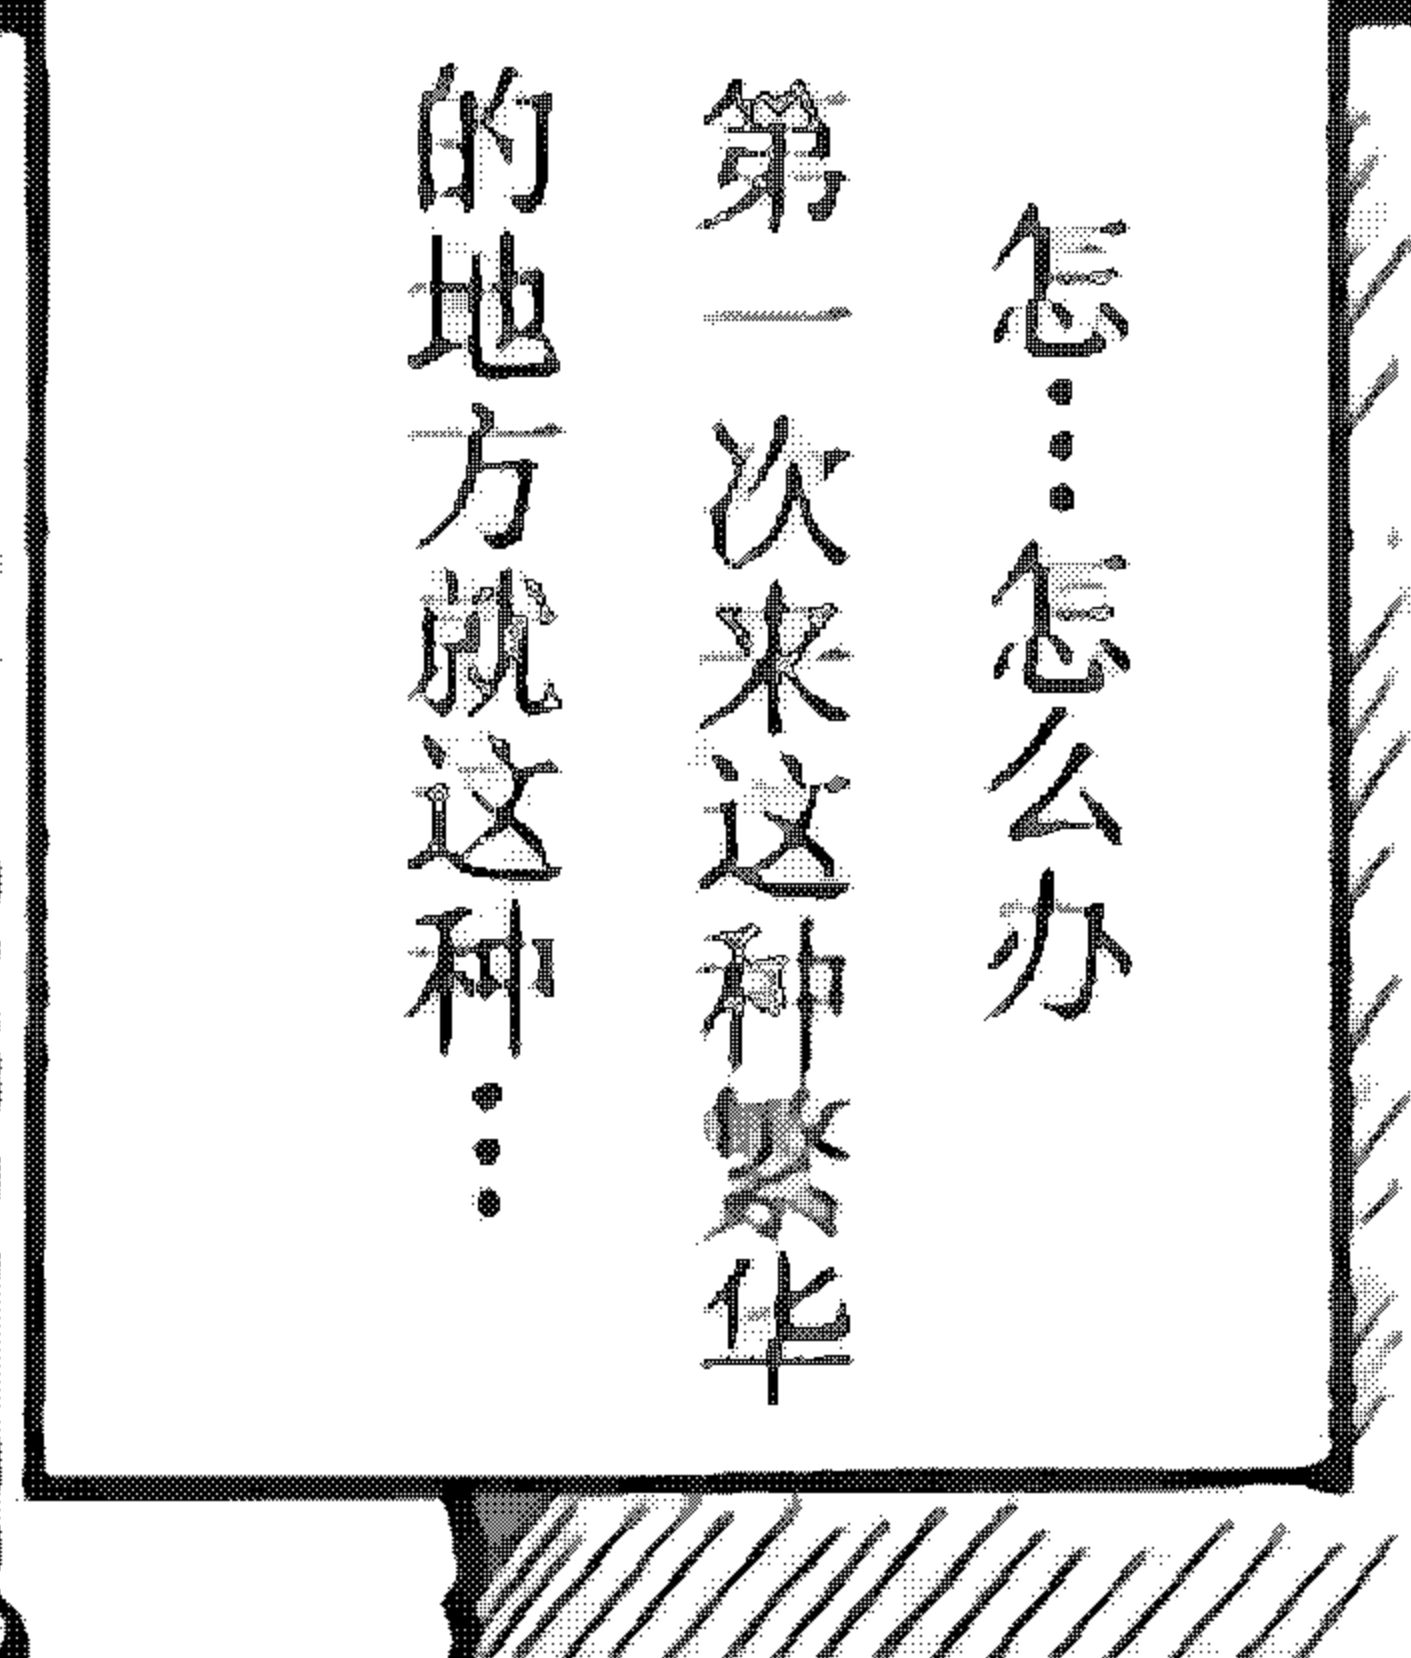 怎…怎么办
第一次来这种繁华
的地方就这种…